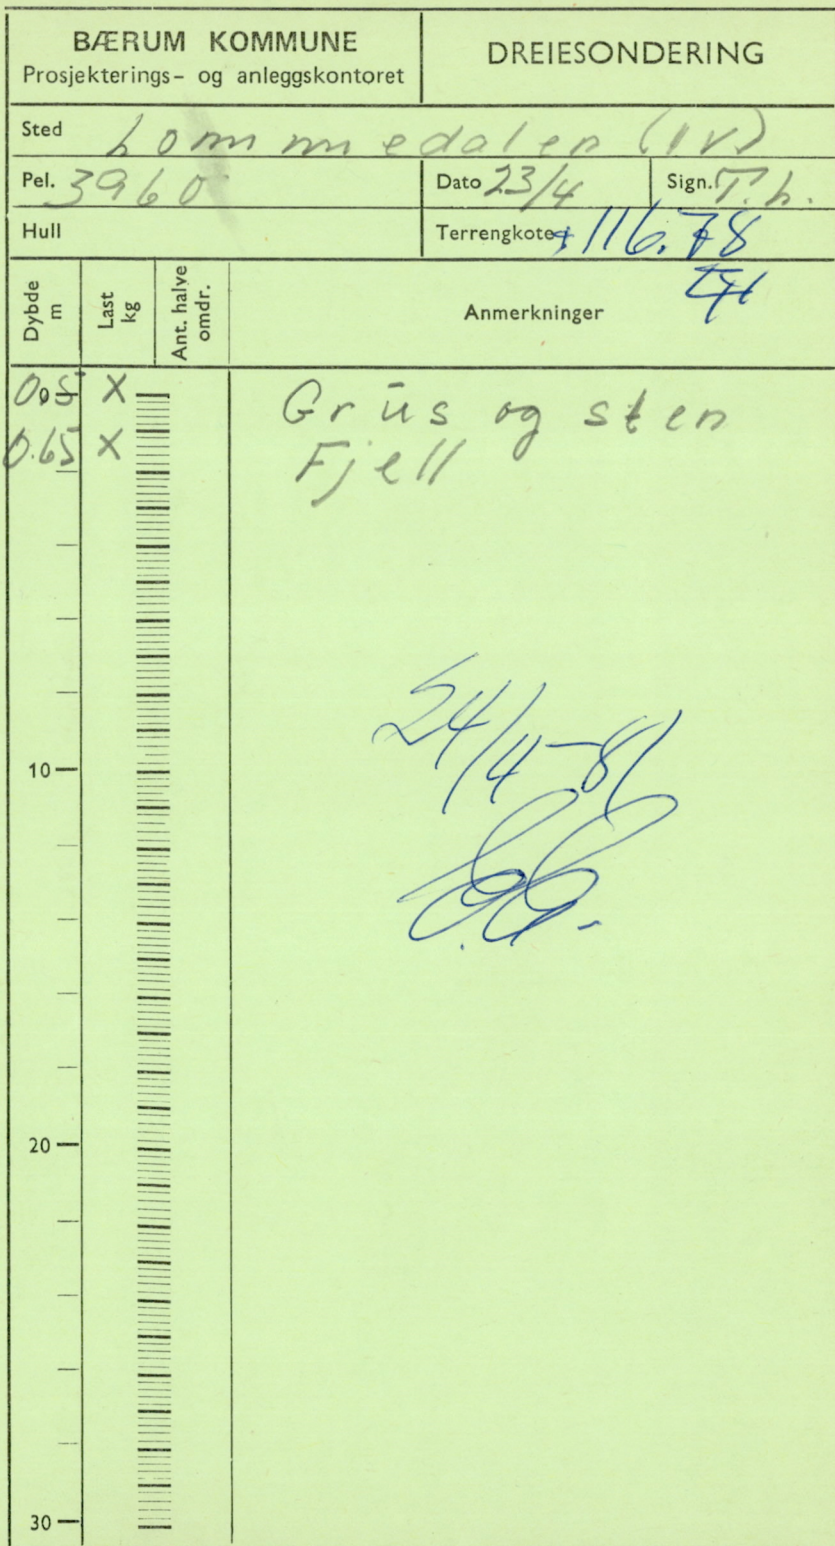 BÆRUM KOMMUNE
Prosjekterings- og anleggskontoret
DREIESONDERING
Sted Lommedalen (IV)
Pel. 3960
Dato 23/4
Sign. T.h.
Hull
Terrengkote + 116.78
Dybde m
Last kg
Ant. halve omdr.
Anmerkninger
0.5 X Grus og sten
0
0.65 X Fjell
24/4-81
10
20
30